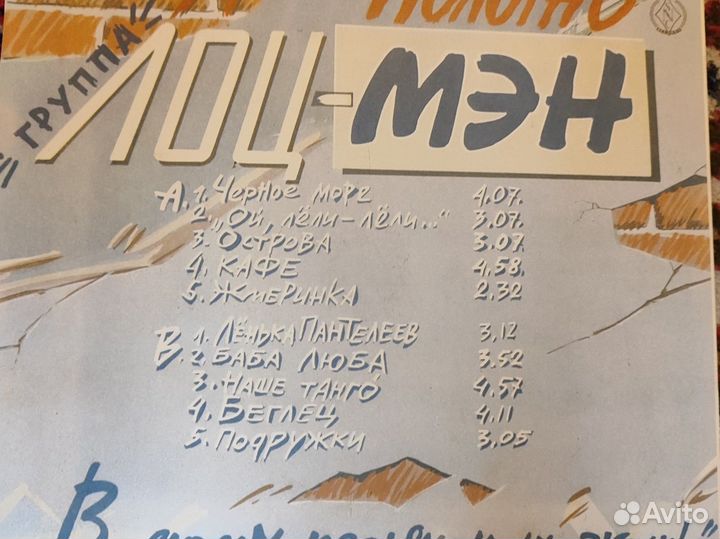 ГРУППА
ЛОЦ-МЭН
А. 1. Черное море 4.07.
2. „Ой, лёли-лёли..." 3.07.
3. Острова 3.07.
4. Кафе 4.58.
5. Жмеринка 2.32
В. 1. Лёнька Пантелеев 3.12
2. Баба Люба 3.52
3. Наше танго 4.57
4. Беглец 4.11
5. Подружки 3.05
В
Avito